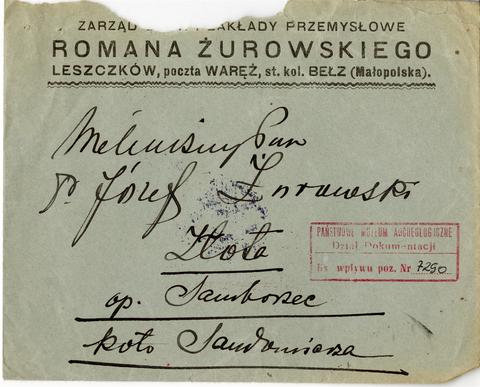 ZARZĄD ZAKŁADY PRZEMYSŁOWE
ROMANA ŻUROWSKIEGO
LESZCZKÓW, poczta WARĘŻ, st. kol. BEŁZ (Małopolska).
Wielmożny Pan
P. Józef Żurowski
Złota
op. Samborzec
koło Sandomierza
PAŃSTWOWE MUZEUM ARCHEOLOGICZNE
Dział Dokumentacji
Ks wpływu poz. Nr 7290